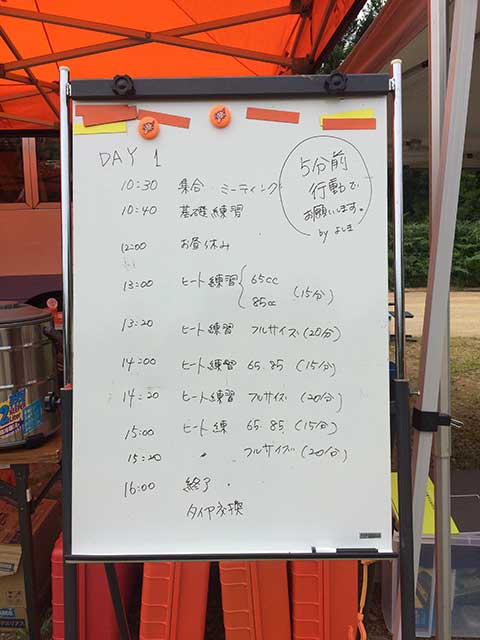 DAY 1
10:30 集合 ミーティング
10:40 基礎練習
12:00 お昼休み
13:00 ヒート練習 65cc (15分)
85cc
13:20 ヒート練習 フルサイズ(20分)
14:00 ヒート練習 65.85 (15分)
14:20 ヒート練習 フルサイズ (20分)
15:00 ヒート練 65.85 (15分)
15:20 〃 フルサイズ(20分)
16:00 終了.
タイヤ交換
5分前
行動で
お願いします。
by よしま